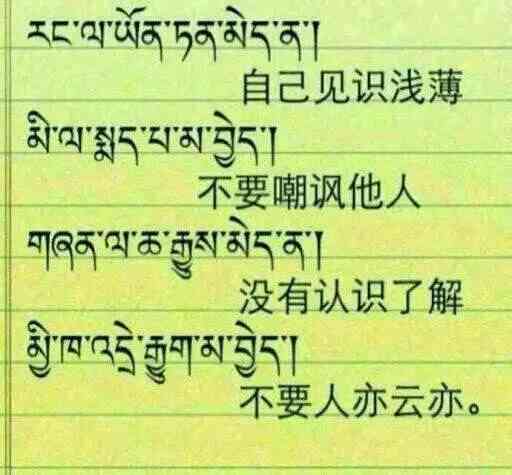 རང་ལ་ཡོན་ཏན་མེད་ན་།
自己见识浅薄
མི་ལ་སྨད་པ་མ་བྱེད་།
不要嘲讽他人
གཞན་ལ་ཆ་རྒྱུས་མེད་ན་།
没有认识了解
མྱི་ཁ་འདྲེ་རྒྱུག་མ་བྱེད་།
不要人亦云亦。